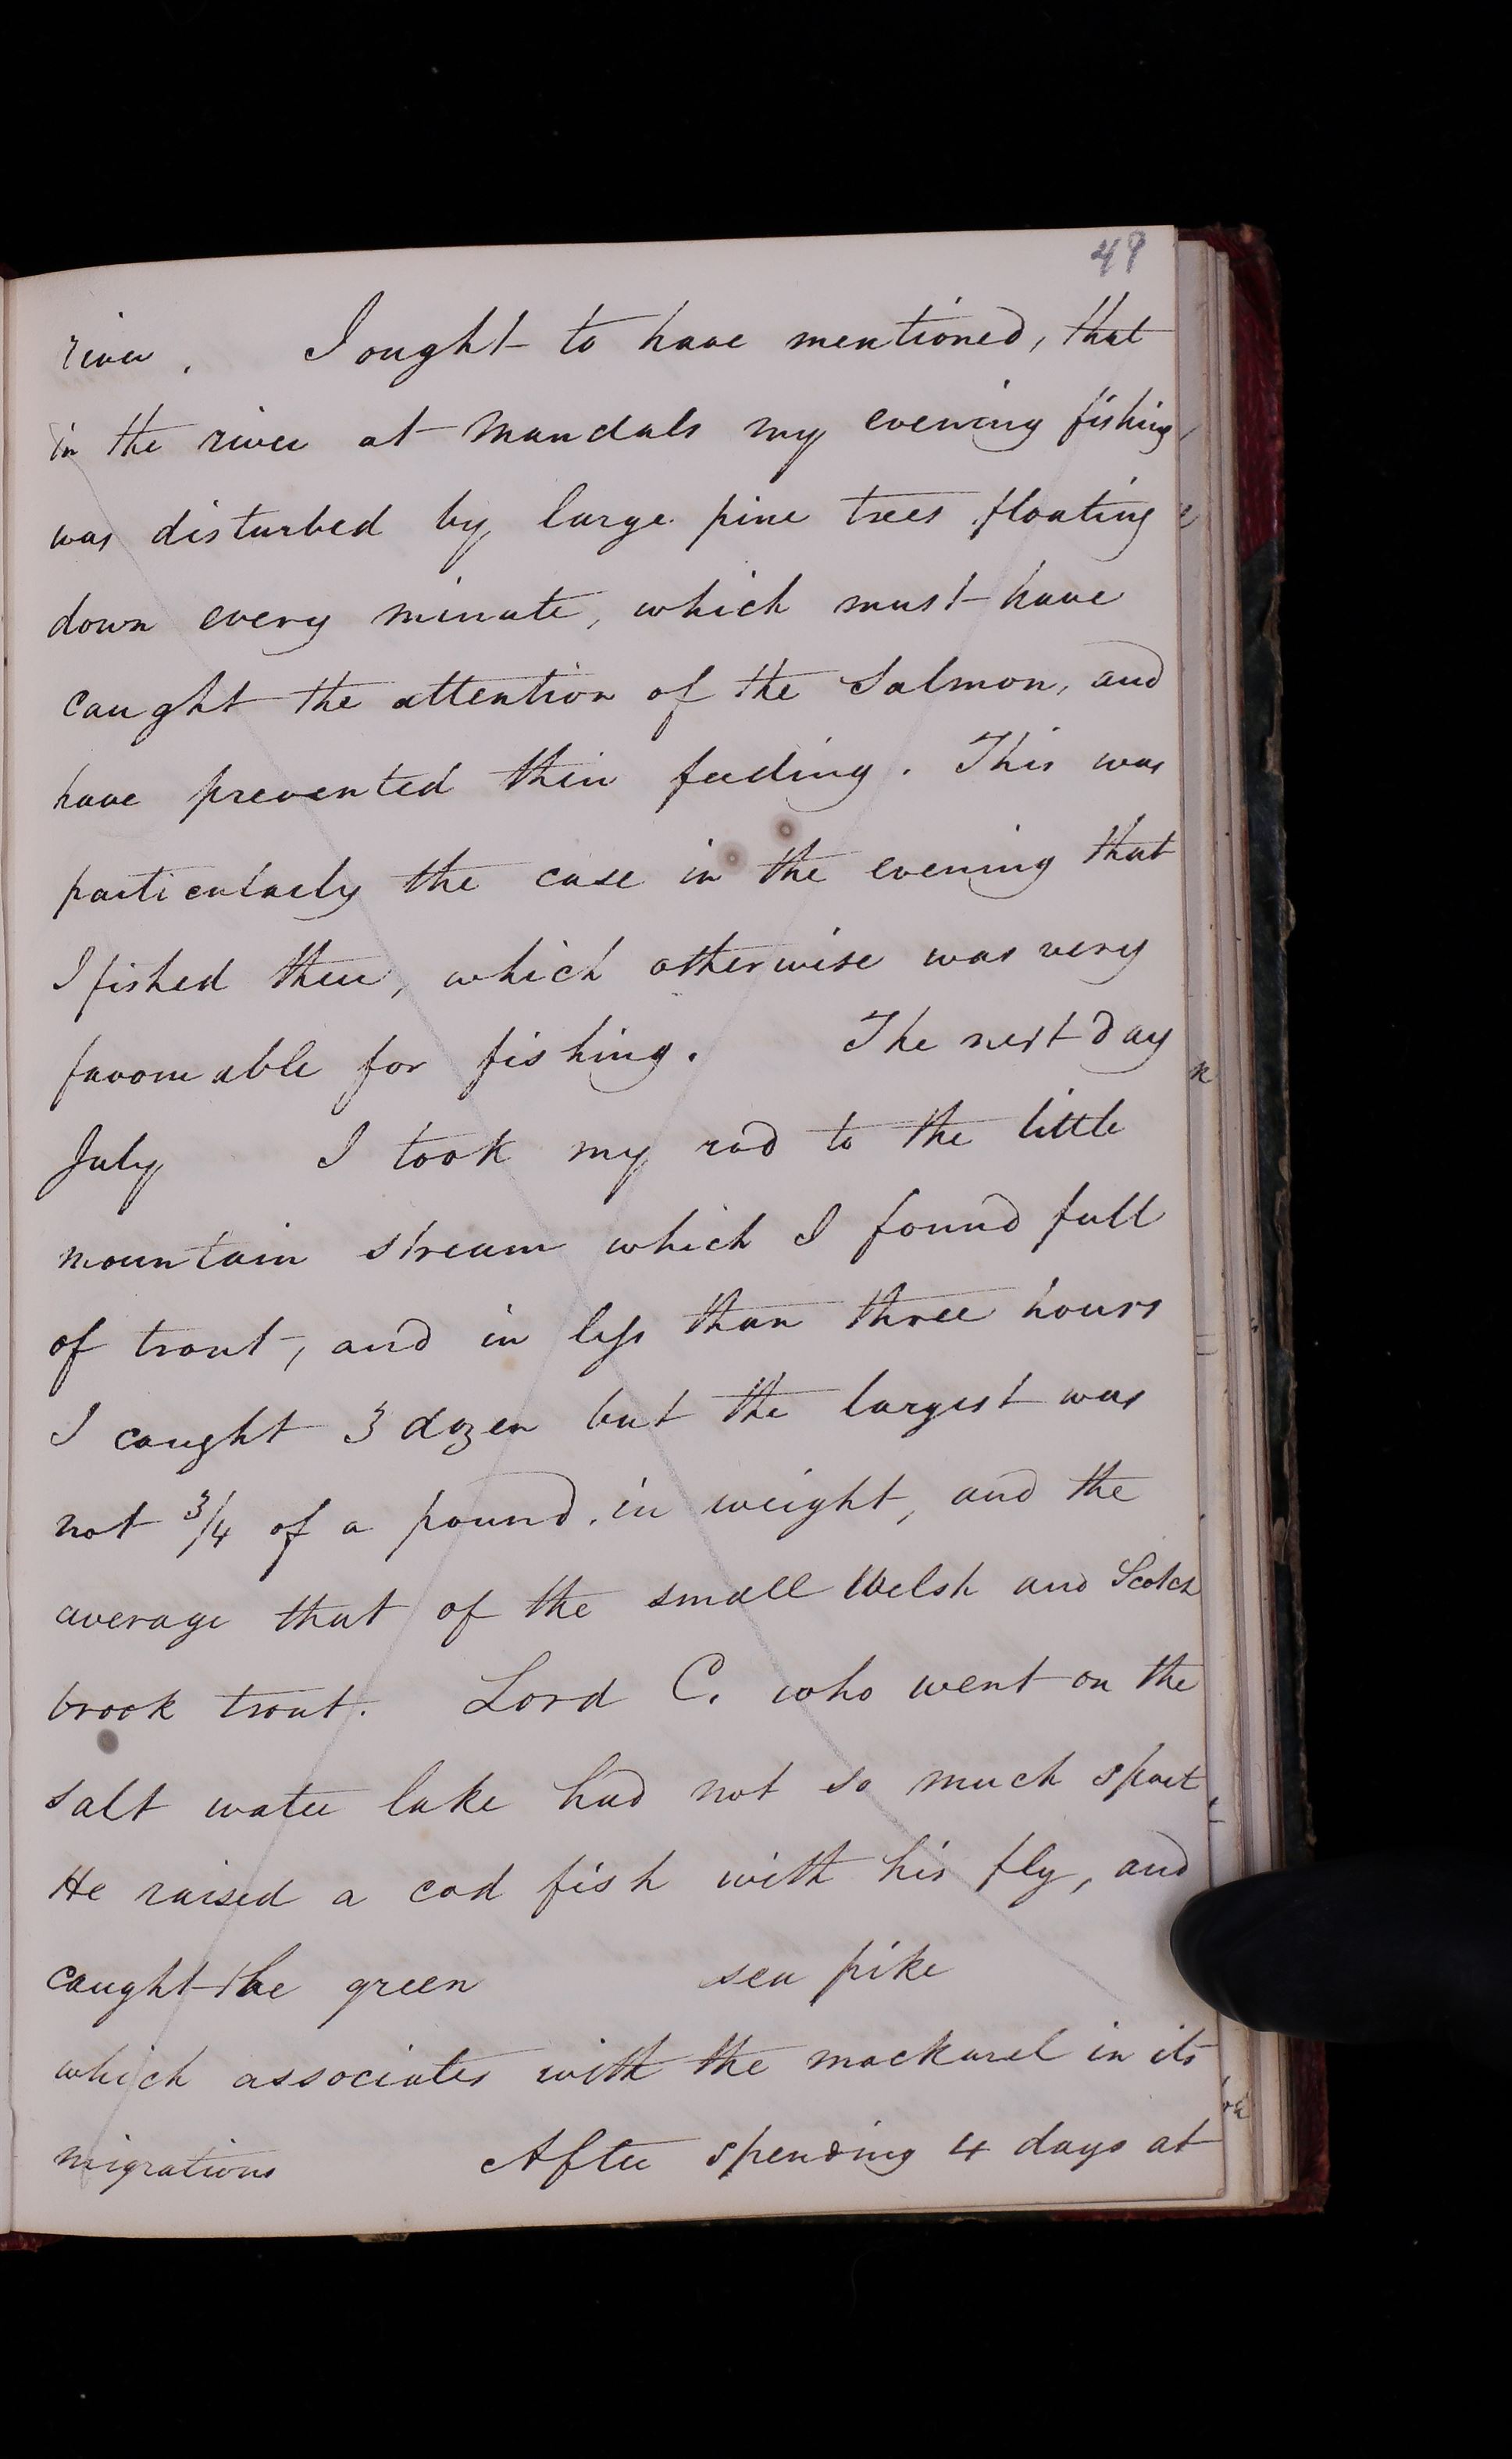 49
river. I ought to have mentioned, that
in the river at Mandals my evening fishing
was disturbed by large pine trees floating
down every minute, which must have
caught the attention of the Salmon, and
have prevented their feeding. This was
particularly the case in the evening that
I fished there, which otherwise was very
favourable for fishing. The next day
July I took my rod to the little
mountain stream which I found full
of trout, and in less than three hours
I caught 3 dozen but the largest was
not 3/4 of a pound. in weight, and the
average that of the small Welsh and Scotch
brook trout. Lord C. who went on the
salt water lake had not so much sport.
He raised a cod fish with his fly, and
caught the green sea pike
which associates with the mackarel in its
migrations After spending 4 days at